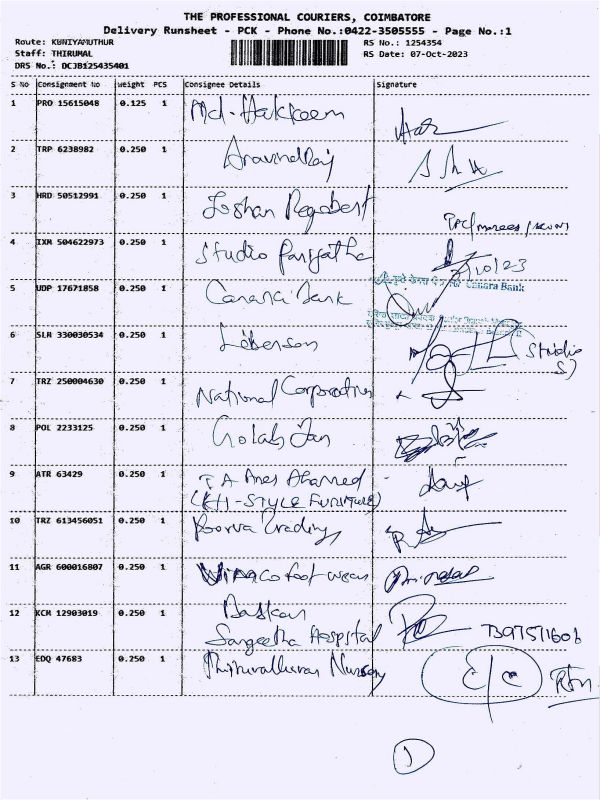 THE PROFESSIONAL COURIERS, COIMBATORE
Delivery Runsheet - PCK - Phone No.:0422-3505555 - Page No.:1
Route: KUNIYAMUTHUR
RS No.: 1254354
Staff: THIRUMAL
RS Date: 07-Oct-2023
DRS No.: DCJB125435401
S No Consignment No Weight PCS Consignee Details Signature
1 PRO 15615048 0.125 1 Md. Hakkeem
2 TRP 6238982 0.250 1 Aravind Raj
3 HRD 50512991 0.250 1
4 IXM 504622973 0.250 1 Studio Parijatha /10/23
5 UDP 17671858 0.250 1 Canara Bank Canara Bank
6 SLM 330030534 0.250 1 (Studio
7 TRZ 250004630 0.250 1 National Corporation
8 POL 2233125 0.250 1 Golab Jan
9 ATR 63429 0.250 1 T A Anes Ahamed
(KH-STYLE FURNITURE)
10 TRZ 613456051 0.250 1 Poorva Trading
11 AGR 600016807 0.250 1 foot wear
12 KCM 12903019 0.250 1 Baskar
Sangeetha Hospital
13 EDQ 47683 0.250 1 Thiruvalluvar Nursery
1